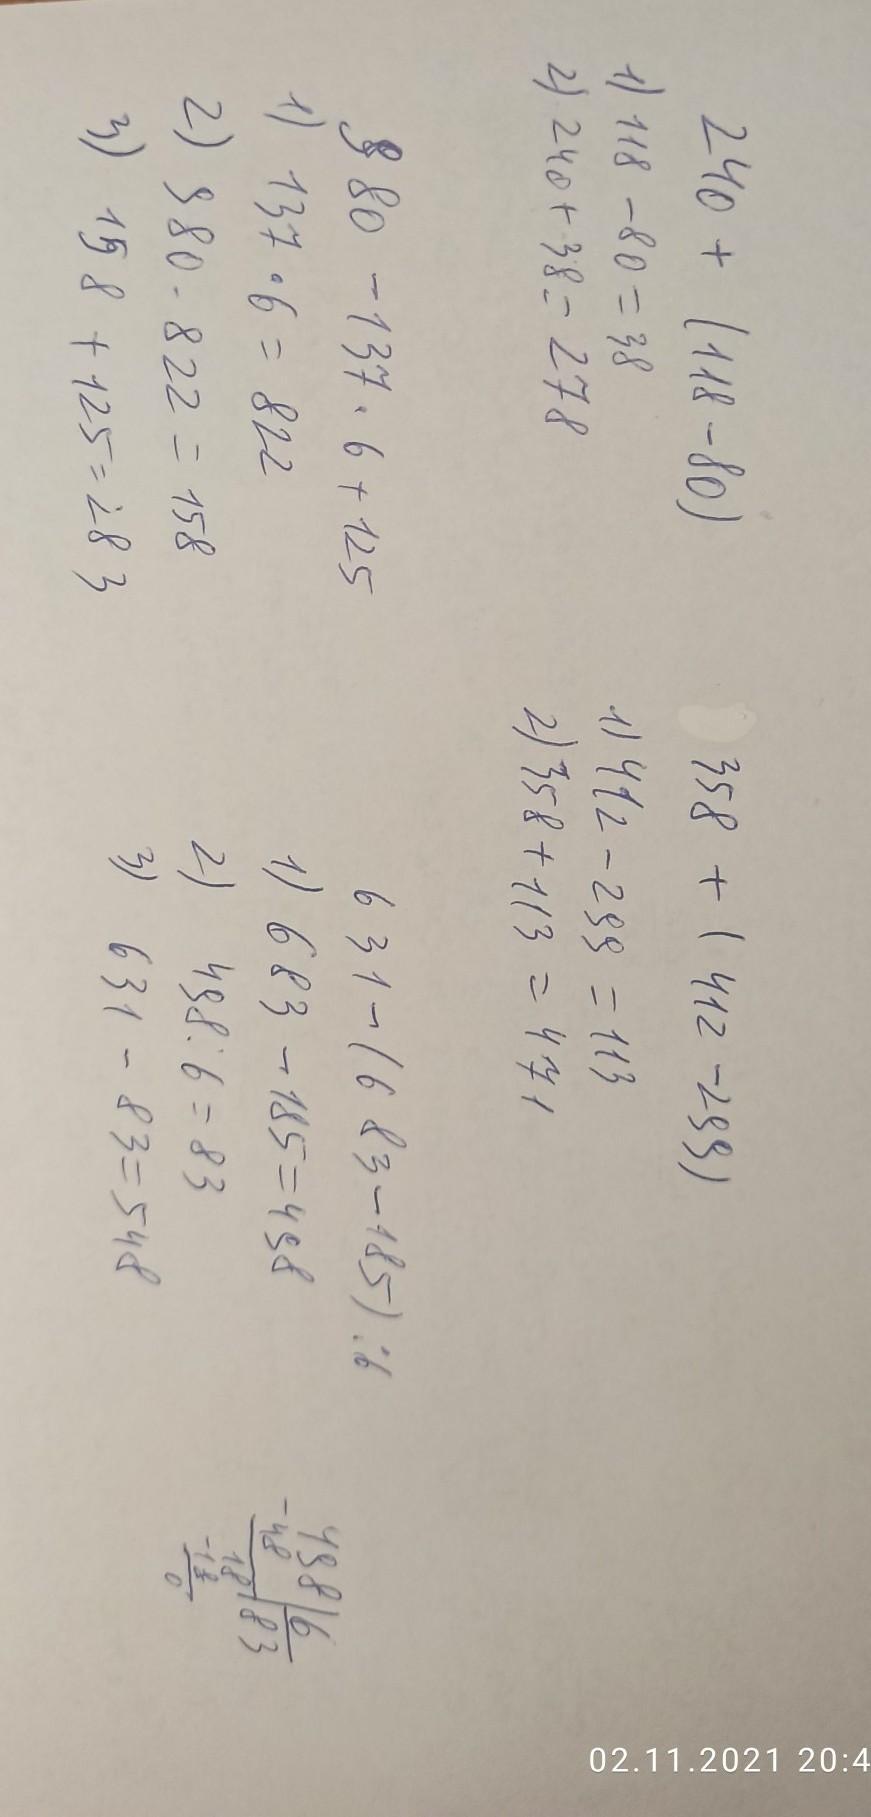 240 + (118 - 80)
1) 118 - 80 = 38
2) 240 + 38 = 278
358 + (412 - 299)
1) 412 - 299 = 113
2) 358 + 113 = 471
980 - 137 · 6 + 125
1) 137 · 6 = 822
2) 980 - 822 = 158
3) 158 + 125 = 283
631 - (683 - 185) : 6
1) 683 - 185 = 498
2) 498 : 6 = 83
3) 631 - 83 = 548
498 | 6
-48 | 83
18
-18
0
02.11.2021 20:4